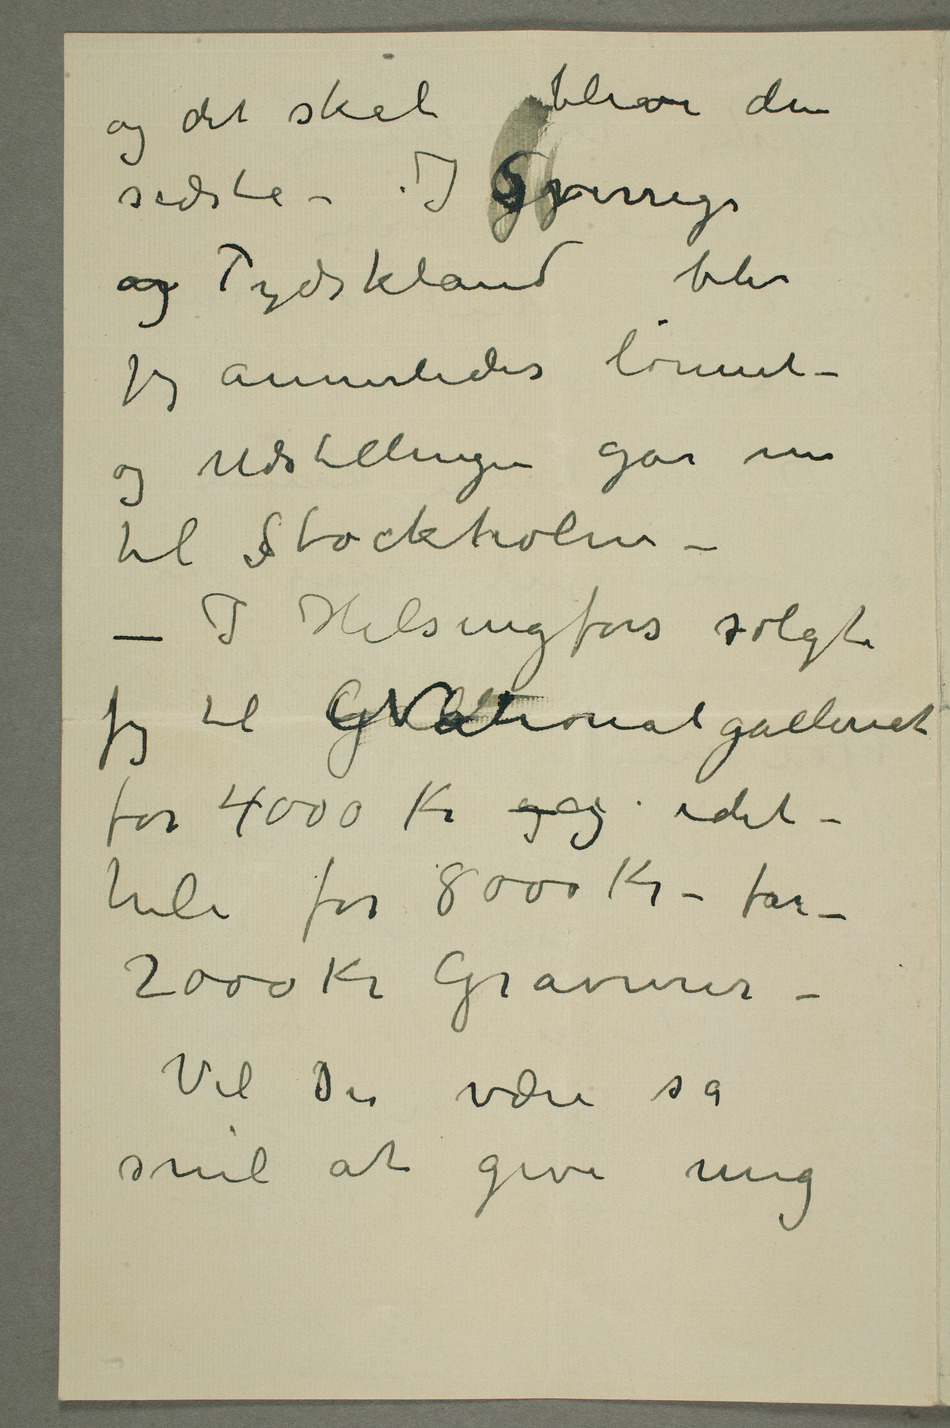 og det skal blive den
sidste – I Sverrige
og Tydskland blir
jeg annerledes lønnet –
og Udstillingen går nu
til Stockholm –
– I Helsingfors solgte
jeg til Nationalgalleriet
for 4000 Kr og idet –
hele for 8000 Kr – for –
2000 Kr Gravurer –
Vil De være så
snil at give mig